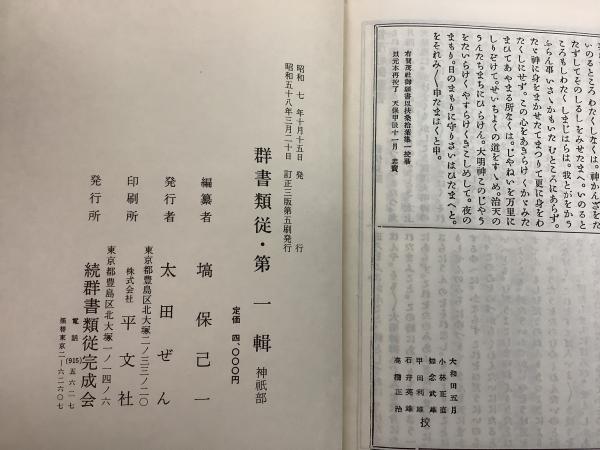 いのるところわたくしなくは。神かんざをた
たずしてそのしるしをみせたまへ。いのると
ころもしわたくしまじはらは。我とがをかう
ふらん事いさゝかもいたむところにあらず。
たゞ神に身をまかせたてまつりて更に身をわ
たくしにせず。この心をあきらけくかゞみた
まひてあやまる所なくは。じやねいを万里に
しりぞけて。せいちよくの道をすゝめ。治天の
うんたちまちにひらけん。大明神このじやう
をたいらけくやすらけくきこしめして。夜の
まもり。日のまもりに守りさいはひたまへと。
をそれみ〳〵申たまはくと申。
右賀茂社御願書以扶桑拾葉集一挍畢
以元本再挍了 天保甲辰十一月 忠寶
大和田五月
小林正直
甲田利雄
石井英雄
高橋正治
挍
昭和 七 年十月十五日 発 行
昭和五十八年三月二十日 訂正三版第五刷発行
群書類従・第一輯 神祇部
定価 四、〇〇〇円
編纂者 塙保己一
発行者 太田ぜん
東京都豊島区北大塚二ノ三三ノ二〇
印刷所 株式会社 平文社
東京都豊島区北大塚一ノ一四ノ六
発行所 続群書類従完成会
電話 (915)五六二七
振替東京二ー六二六〇七